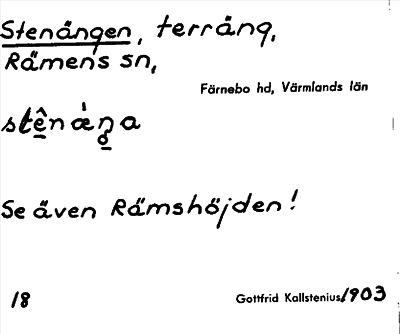 Stenängen, terräng,
Rämens sn,
Färnebo hd, Värmlands län
Se även Rämshöjden!
18
Gottfrid Kallstenius 1903